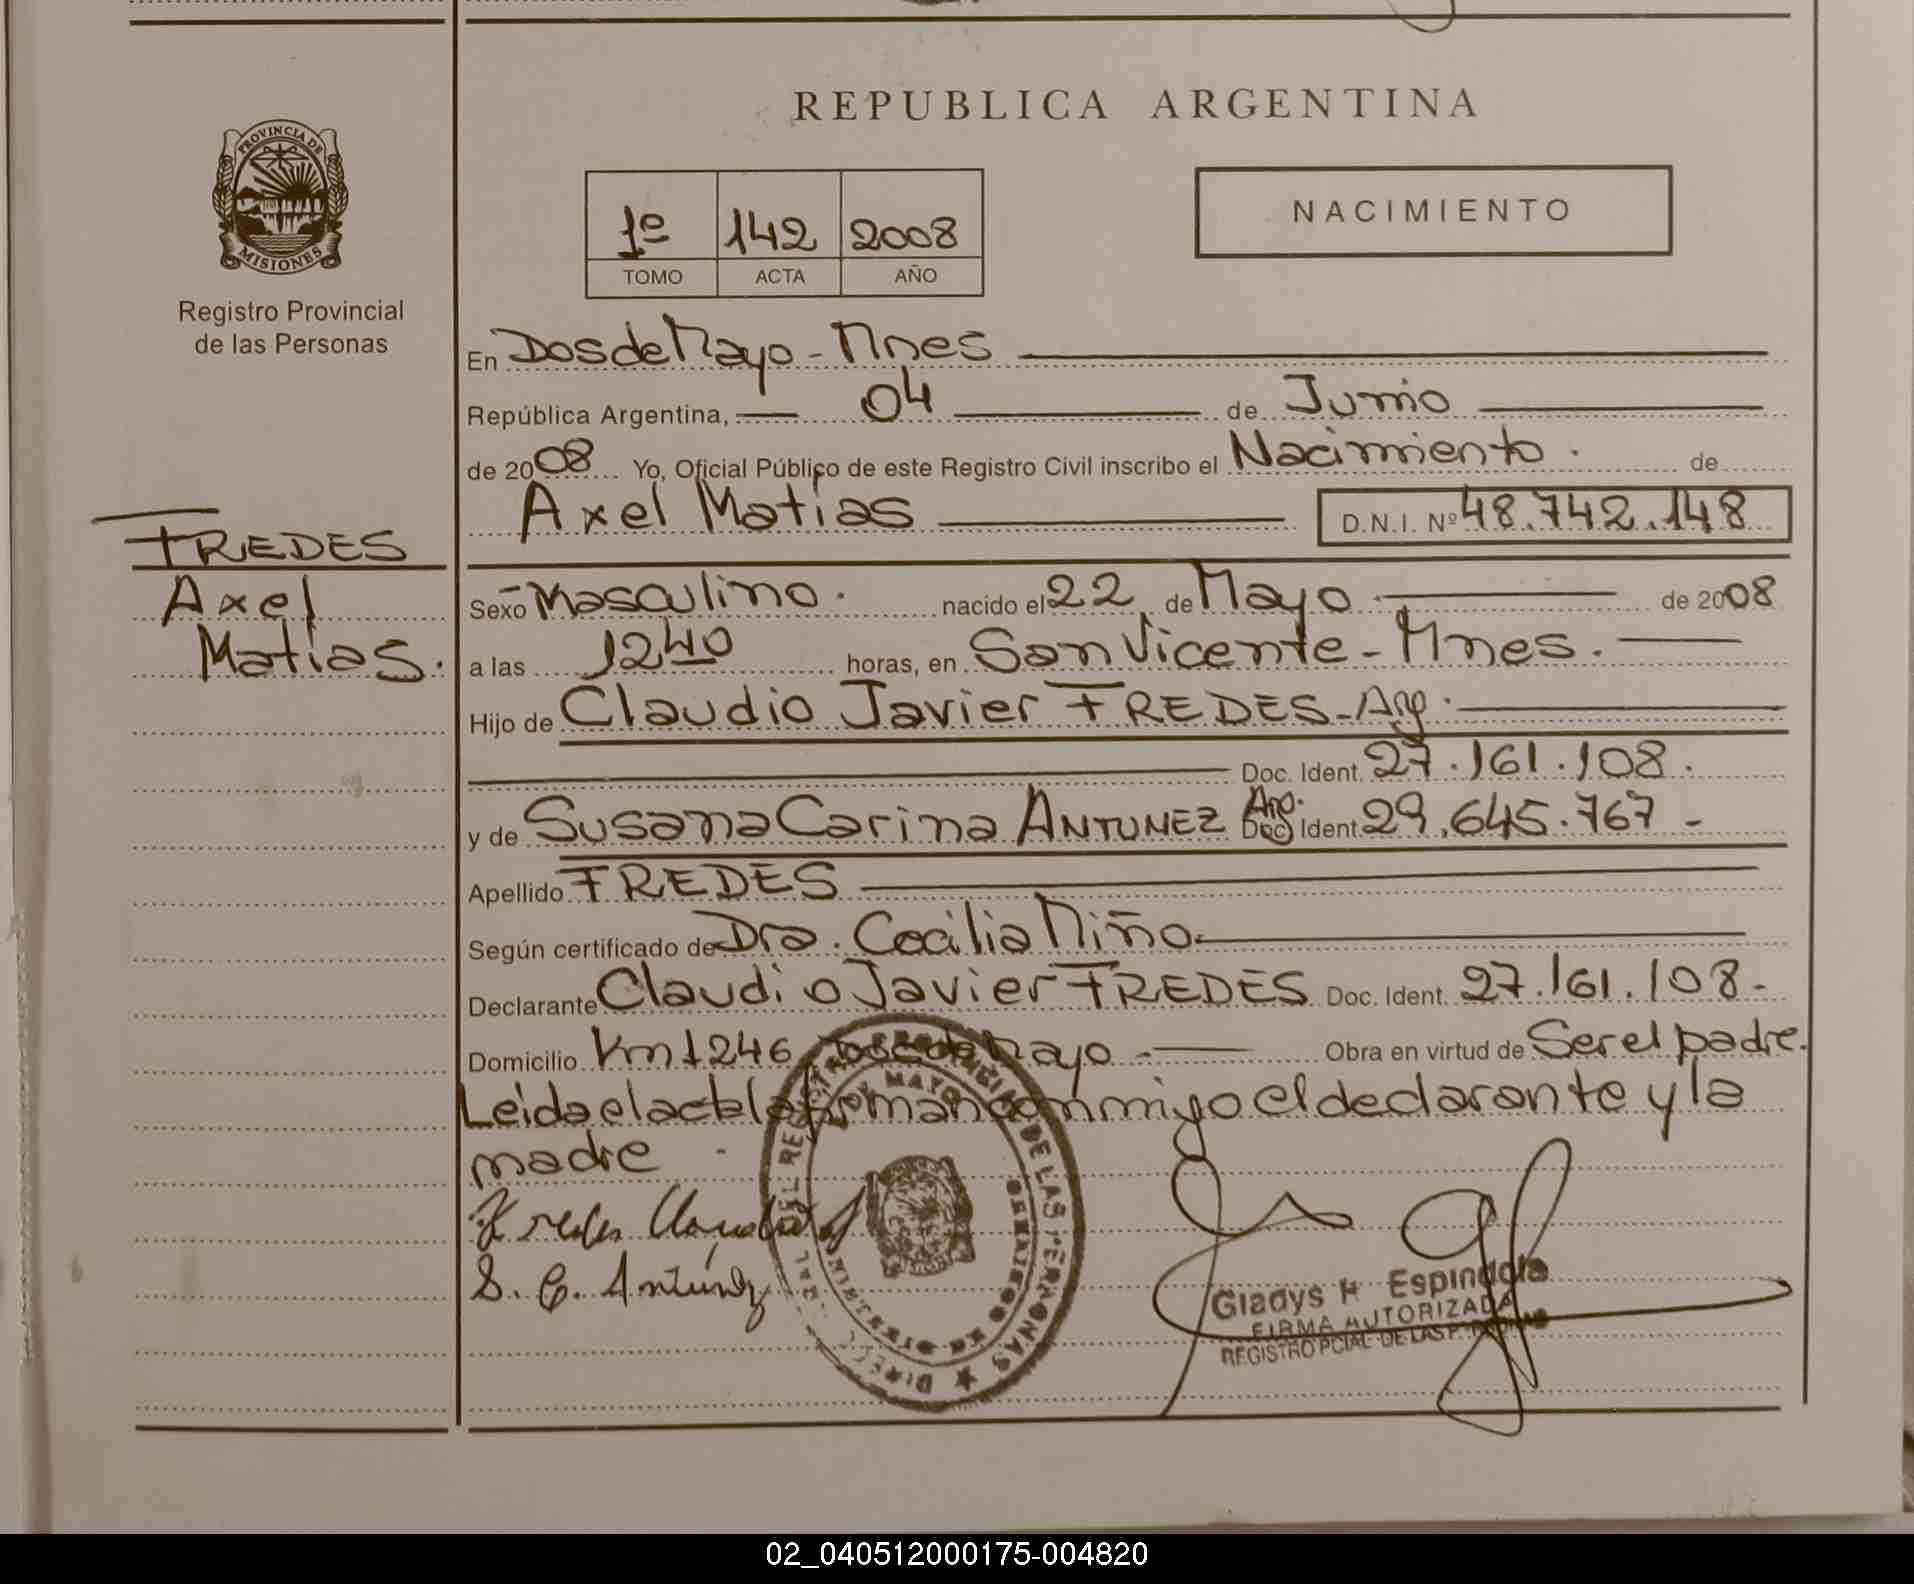 REPUBLICA ARGENTINA
PROVINCIA DE
MISIONES
Registro Provincial
de las Personas
1º 142 2008
TOMO ACTA AÑO
NACIMIENTO
En Dos de Mayo - Mnes
República Argentina, 04 de Junio
de 2008 Yo, Oficial Público de este Registro Civil inscribo el Nacimiento. de
Axel Matias D.N.I. Nº 48.742.148
FREDES
Axel
Matias.
Sexo Masculino. nacido el 22 de Mayo de 2008
a las 12 40 horas, en San Vicente - Mnes.
Hijo de Claudio Javier FREDES - Arg.
Doc. Ident. 27.161.108.
y de Susana Carina ANTUNEZ Arg. Doc. Ident. 29.645.767 -
Apellido FREDES
Según certificado de Dra. Cecilia Niño.
Declarante Claudio Javier FREDES Doc. Ident. 27.161.108.-
Domicilio Km 1246 Dos de Mayo - Obra en virtud de Ser el padre.
Leida el acta la firman conmigo el declarante y la
madre.
Fredes Claudio J
S. C. Antúnez
DIRECC DEL REGISTRO PROVINCIAL DE LAS PERSONAS
DOS DE MAYO
MISIONES
Gladys H Espindola
FIRMA AUTORIZADA
REGISTRO PCIAL DE LAS PERSONAS
02_040512000175-004820